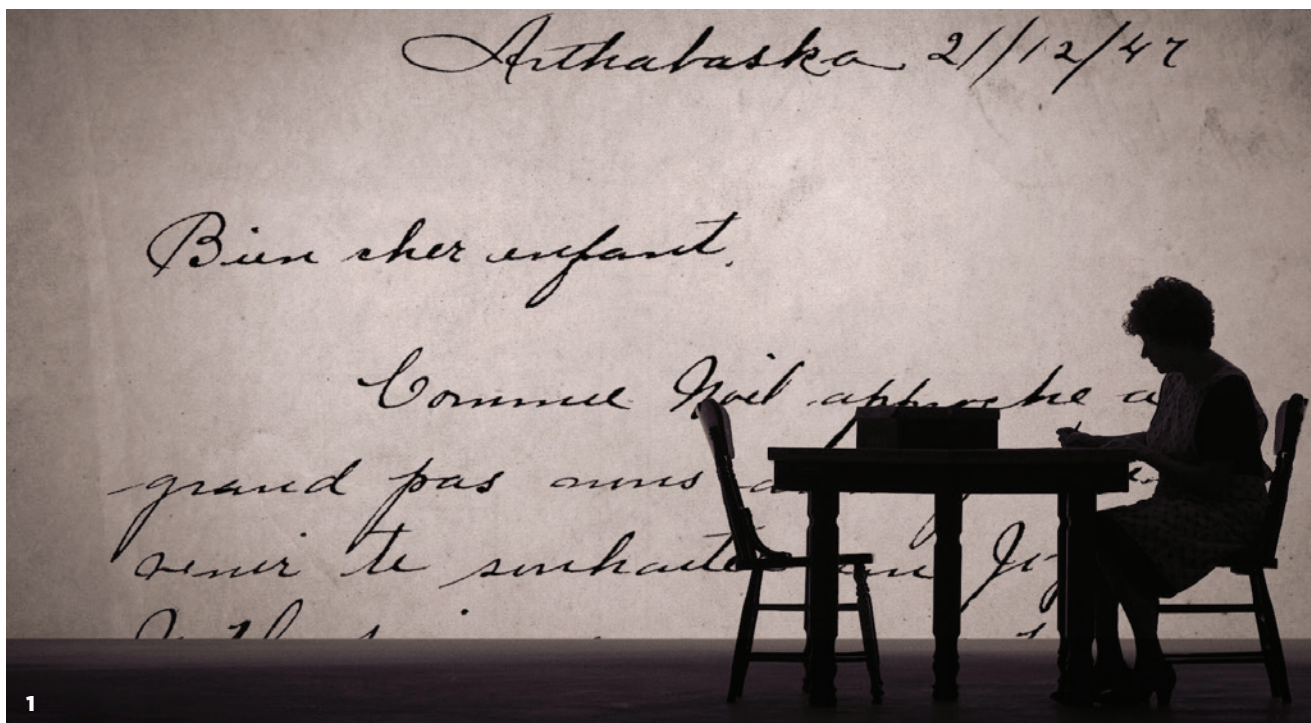 Arthabaska 21/12/47
Bien cher enfant,
Comme Noël approche a
grand pas nous
venir te souhaiter un
1